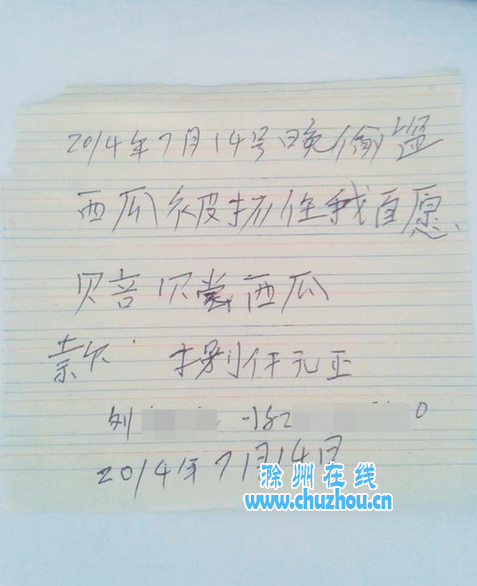 2014年7月14号晚偷盗
西瓜被抓住我自愿
赔贝尝西瓜
款 捌仟元正
2014年7月14日
滁州在线
www.chuzhou.cn